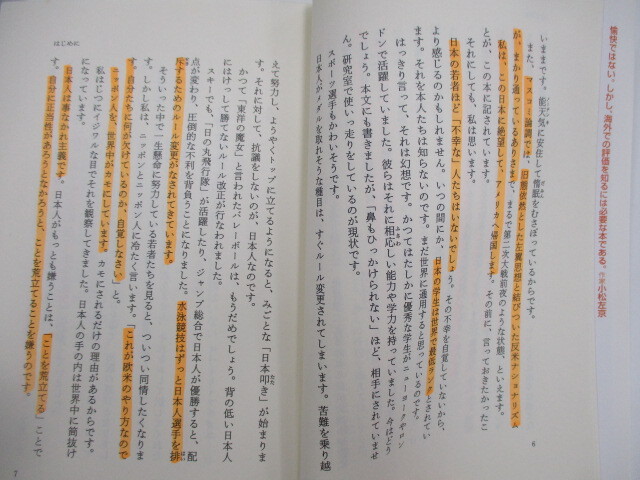 愉快ではない。しかし、海外での評価を知るには必要な本である。作家小松左京
いままです。能天気に安住して惰眠をむさぼっているからです。
また、マスコミ論調では、旧態依然とした左翼思想と結びついた反米ナショナリズム
が、まかり通っているありさまで、まるで第二次大戦前夜のような状態、といえます。
私は、この日本に絶望して、アメリカへ帰国します。その前に、言っておきたかったこ
とが、この本に記されています。
それにしても、私は思います。
日本の若者ほど「不幸な」人たちはいないでしょう。その不幸を自覚していないから、
より感じるのかもしれません。いつの間にか、日本の学生は世界で最低ランクとされてい
ます。それを本人たちは知らないのです。まだ世界に通用すると思っているのです。
はっきり言って、それは幻想です。かつてはたしかに優秀な学生がニューヨークやロン
ドンで活躍していました。彼らはそれに相応しい能力や学力を持っていました。今はどう
でしょう。本文にも書きましたが、「鼻もひっかけられない」ほど、相手にされていませ
ん。研究室で使いっ走りをしているのが現状です。
スポーツ選手もかわいそうです。
日本人がメダルを取れそうな種目は、すぐルール変更されてしまいます。苦難を乗り越
6
はじめに
えて努力し、ようやくトップに立てるようになると、みごとな「日本叩き」が始まりま
す。それに対して、抗議をしないのが、日本人なのです。
かつて「東洋の魔女」と言われたバレーボールは、もうだめでしょう。背の低い日本人
にはけっして勝てないルール改正が行なわれました。
スキーでも、「日の丸飛行隊」が活躍したり、ジャンプ総合で日本人が優勝すると、配
点が変わり、圧倒的な不利を背負うことになりました。水泳競技はずっと日本人選手を排
斥するためのルール変更がなされてきています。
そういった中で一生懸命に努力している若者たちを見ると、ついつい同情したくなりま
す。しかし私は、ニッポンとニッポン人に冷たく言います。「これが欧米のやり方なので
す。自分たちに何が欠けているのか、自覚しなさい」と。
ニッポン人を、世界中がカモにしています。カモにされるだけの理由があるからです。
私はじつにイジワルな目でそれを観察してきました。日本人の手の内は世界中に筒抜け
になっています。
日本人は事なかれ主義です。日本人がもっとも嫌うことは、「ことを荒立てる」ことで
す。自分に正当性があろうとなかろうと、ことを荒立てることを嫌うのです。
7